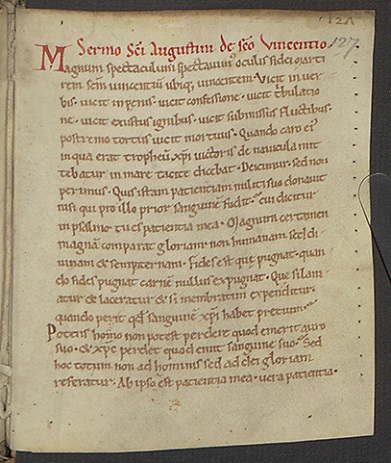 127
Sermo Sc̄i Augustini de sc̄o Vincentio
Magnum spectaculum spectavim᷒ oculis fidei marti
rem sc̄m vincentiū ubiq; vincentem. Vicit in ver
bis. vicit in penis. vicit confessione. vicit tribulatio
ne. vicit exustus ignibus. vicit submissus fluctibus.
postremo tortus vicit mortuus. Quando caro ei᷒
in qua erat tropheū xp̄i victoris de navicula mit
tebatur in mare tacite dicebat. Deicimur. sed non
perimus. Quis istam patientiam militi suo donavit
nisi qui pro illo prior sanguinē fudit. cui dicitur
in psalmo. tu es patientia mea. Magnum certamen
magnā comparat gloriam. non humanam sed di
vinam & sempiternam. Fides est que pugnat. quan
do fides pugnat carnē nullus expugnat. Que si lani
atur & laceratur & si membratim expenditur.
quando perit qd̄ sanguine xp̄i habet pretium.
Potens homo non potest perdere quod emerit auro
suo. & xp̄c perdet quod emit sanguine suo. Sed
hoc totum non ad hominis sed ad dei gloriam
referatur. Ab ipso est patientia mea. vera patientia.